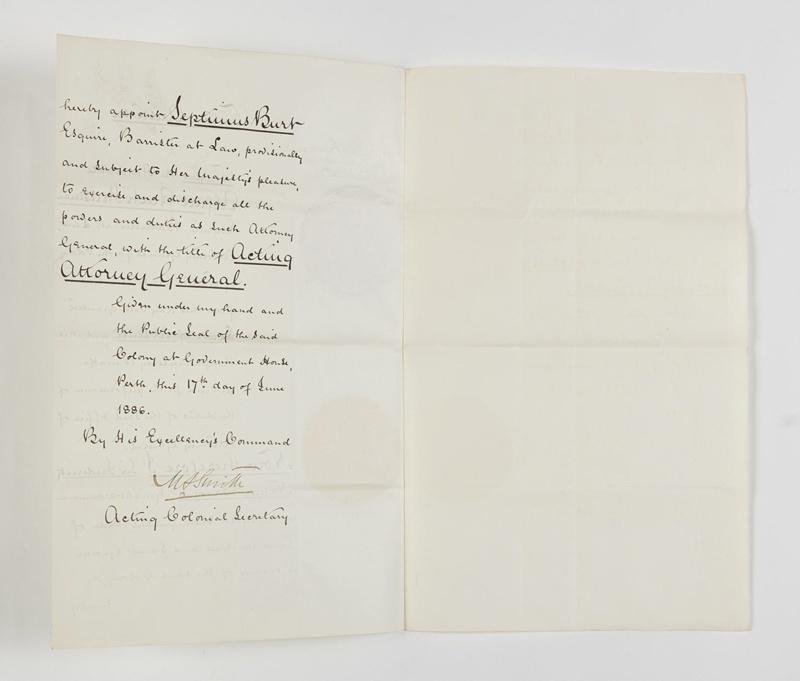 hereby appoint Septimus Burt
Esquire, Barrister at Law, provisionally
and subject to Her Majesty's pleasure,
to exercise and discharge all the
powers and duties as such Attorney
General, with the title of Acting
Attorney General.
Given under my hand and
the Public Seal of the said
Colony at Government House,
Perth, this 17th day of June
1886.
By His Excellency's Command
M S Smith
Acting Colonial Secretary